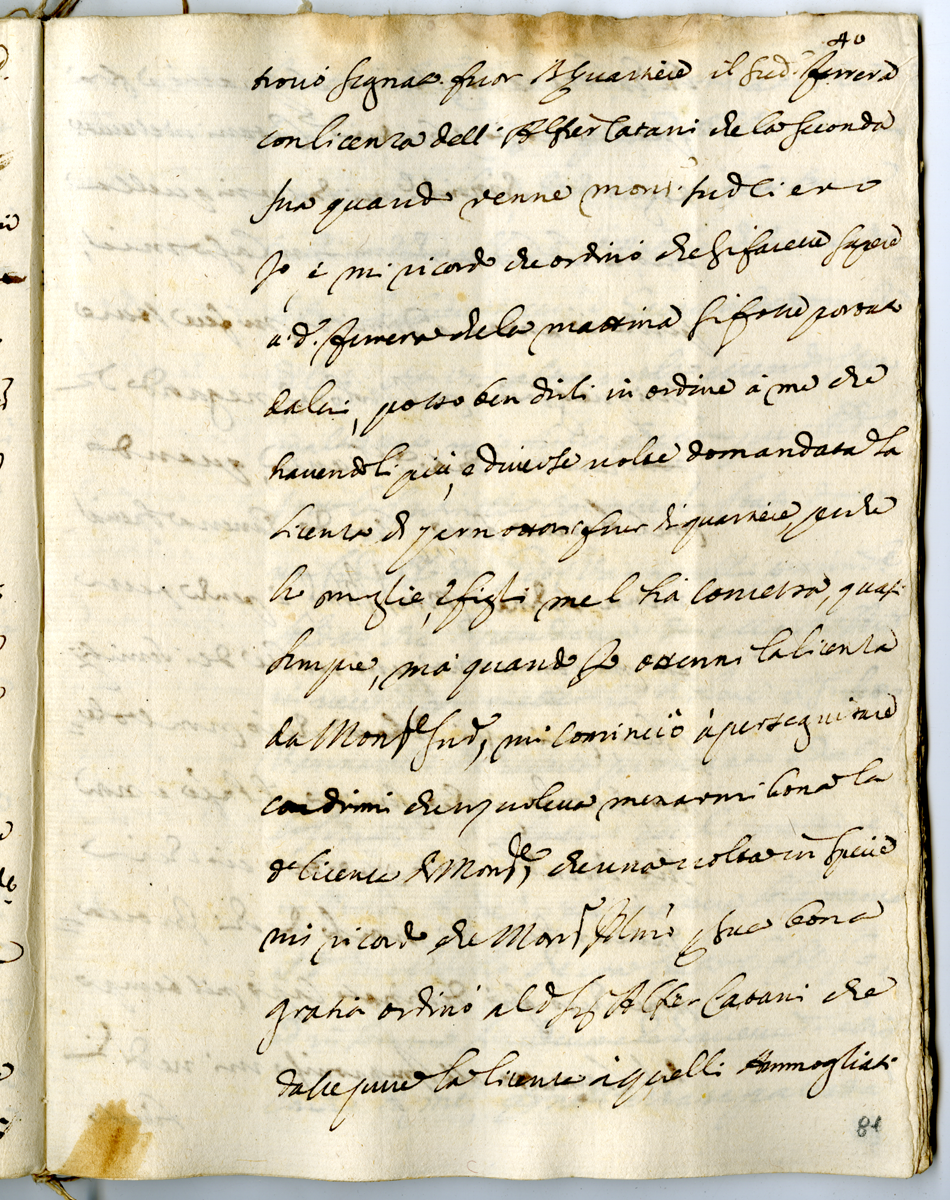 40
trovò segnato fuor di quartiere il sud.º Ferrera
con licenza dell' Alfier Catani che la seconda
sua quando venne mons.r
Io, e mi ricordo che ordinò che si facesse sapere
a d.º Ferrera che la mattina si fosse portato
da lui, posso ben dirli in ordine à me che
havendoli più, e diverse volte domandata la
licenza di pernottar fuor di quartiere, perche
ho moglie, e figli me l'hà concessa, quasi
sempre, mà quando Io ottenni la licenza
da Mons.re sud.º, mi cominciò à perseguitare
con dirmi che non voleva menarmi bona la
d.ª licenza di Mons.re, che una volta in specie
mi ricordo che Mons.r Ill.mo p sua bona
gratia ordinò al d.º Sig.r Alfier Catani che
dasse pure la licenza à quelli Ammogliati
81